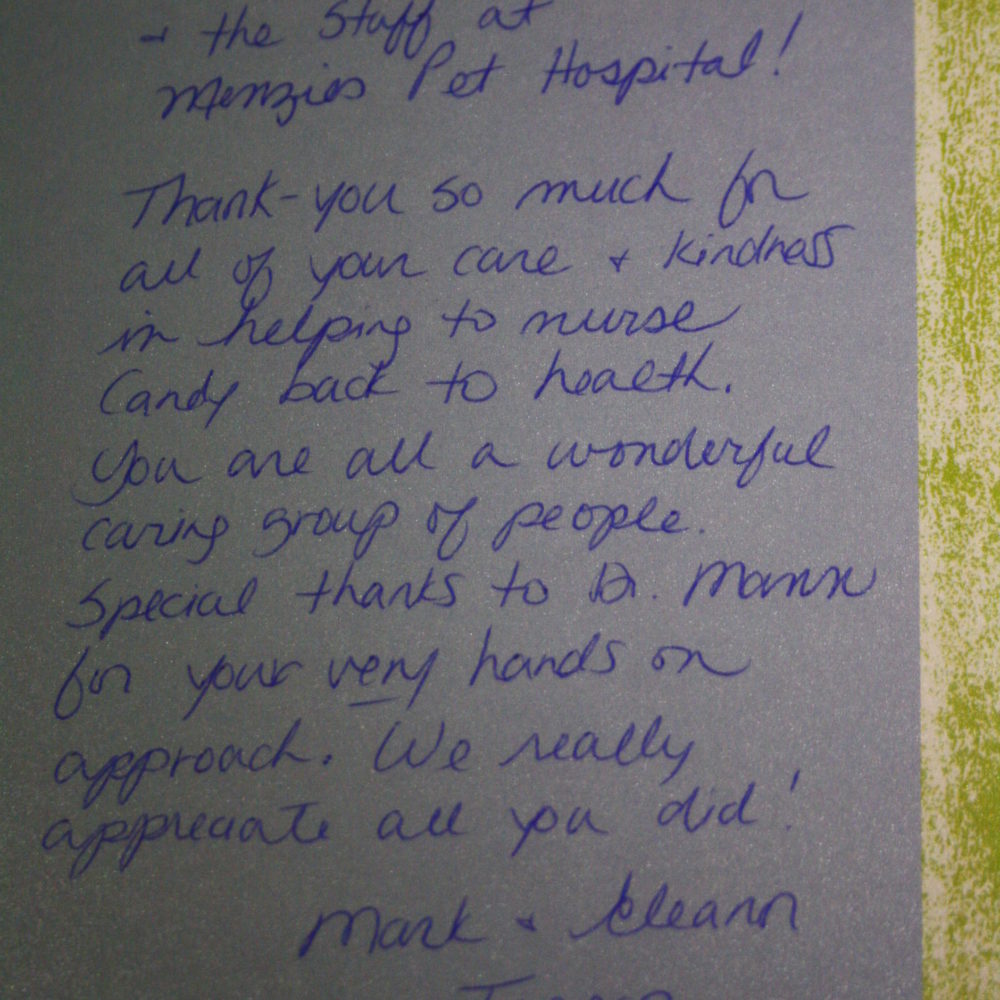 + the Staff at
Menzies Pet Hospital!
Thank-you so much for
all of your care + kindness
in helping to nurse
Candy back to health.
You are all a wonderful
caring group of people.
Special thanks to Dr. Mann
for your very hands on
approach. We really
appreciate all you did!
Mark +